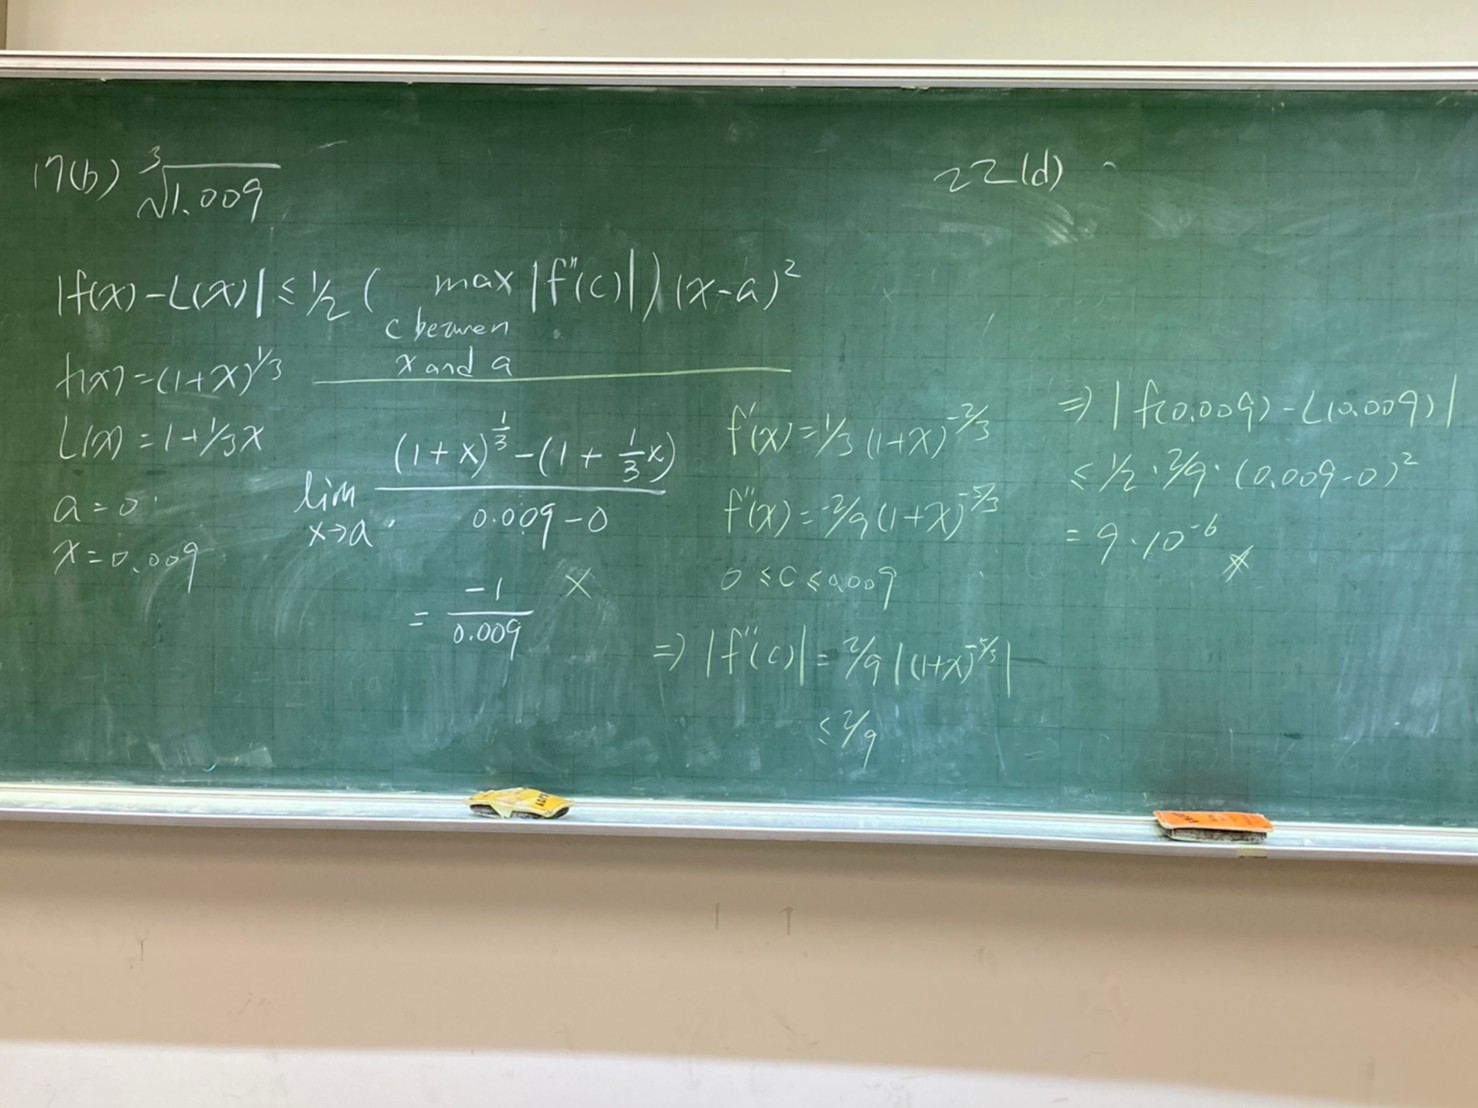 17(b) ∛1.009
|f(x)-L(x)| ≤ 1/2 ( max |f''(c)| ) (x-a)²
c between
x and a
f(x)=(1+x)^1/3
L(x)=1+1/3x
a=0
x=0.009
lim x→a ((1+x)^(1/3) - (1 + 1/3 x)) / (0.009-0)
= -1/0.009 X
f'(x)=1/3 (1+x)^-2/3
f''(x)=-2/9 (1+x)^-5/3
0 ≤ c ≤ 0.009
⇒ |f''(c)| = 2/9 |(1+x)^-5/3|
≤ 2/9
22(d)
⇒ |f(0.009) - L(0.009)|
≤ 1/2 · 2/9 · (0.009-0)²
= 9·10^-6